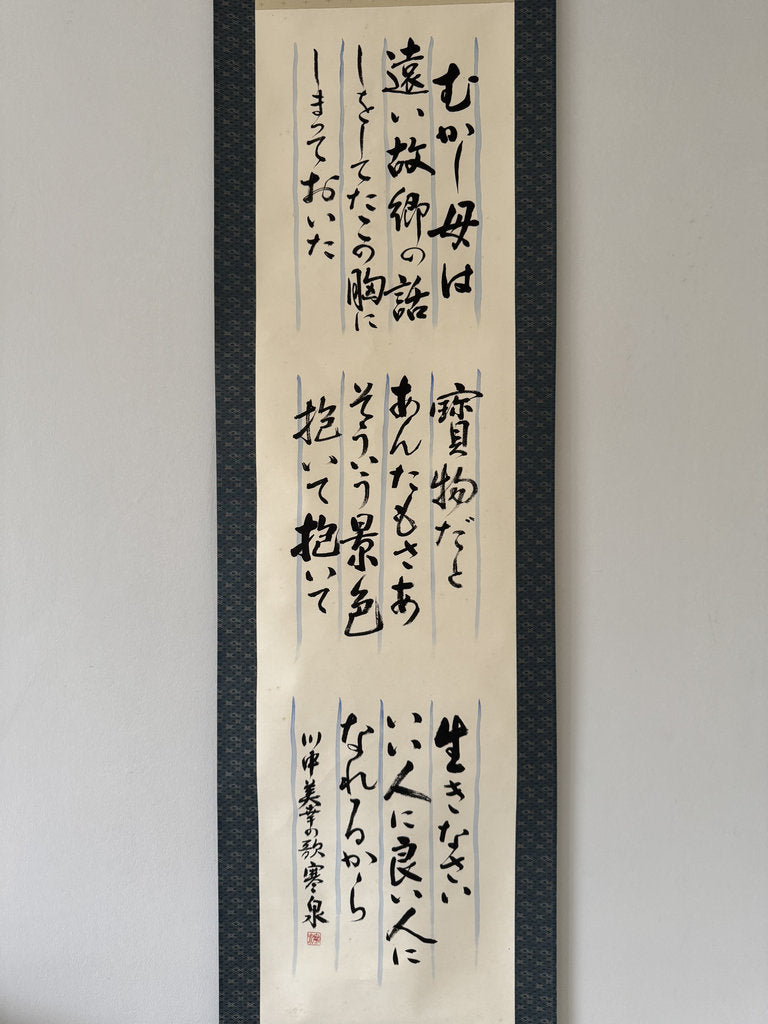 むかし母は
遠い故郷の話
しをしてたこの胸に
しまっておいた
寶物だと
あんたもさあ
そういう景色
抱いて抱いて
生きなさい
いい人に良い人に
なれるから
川中美幸の歌 寒泉